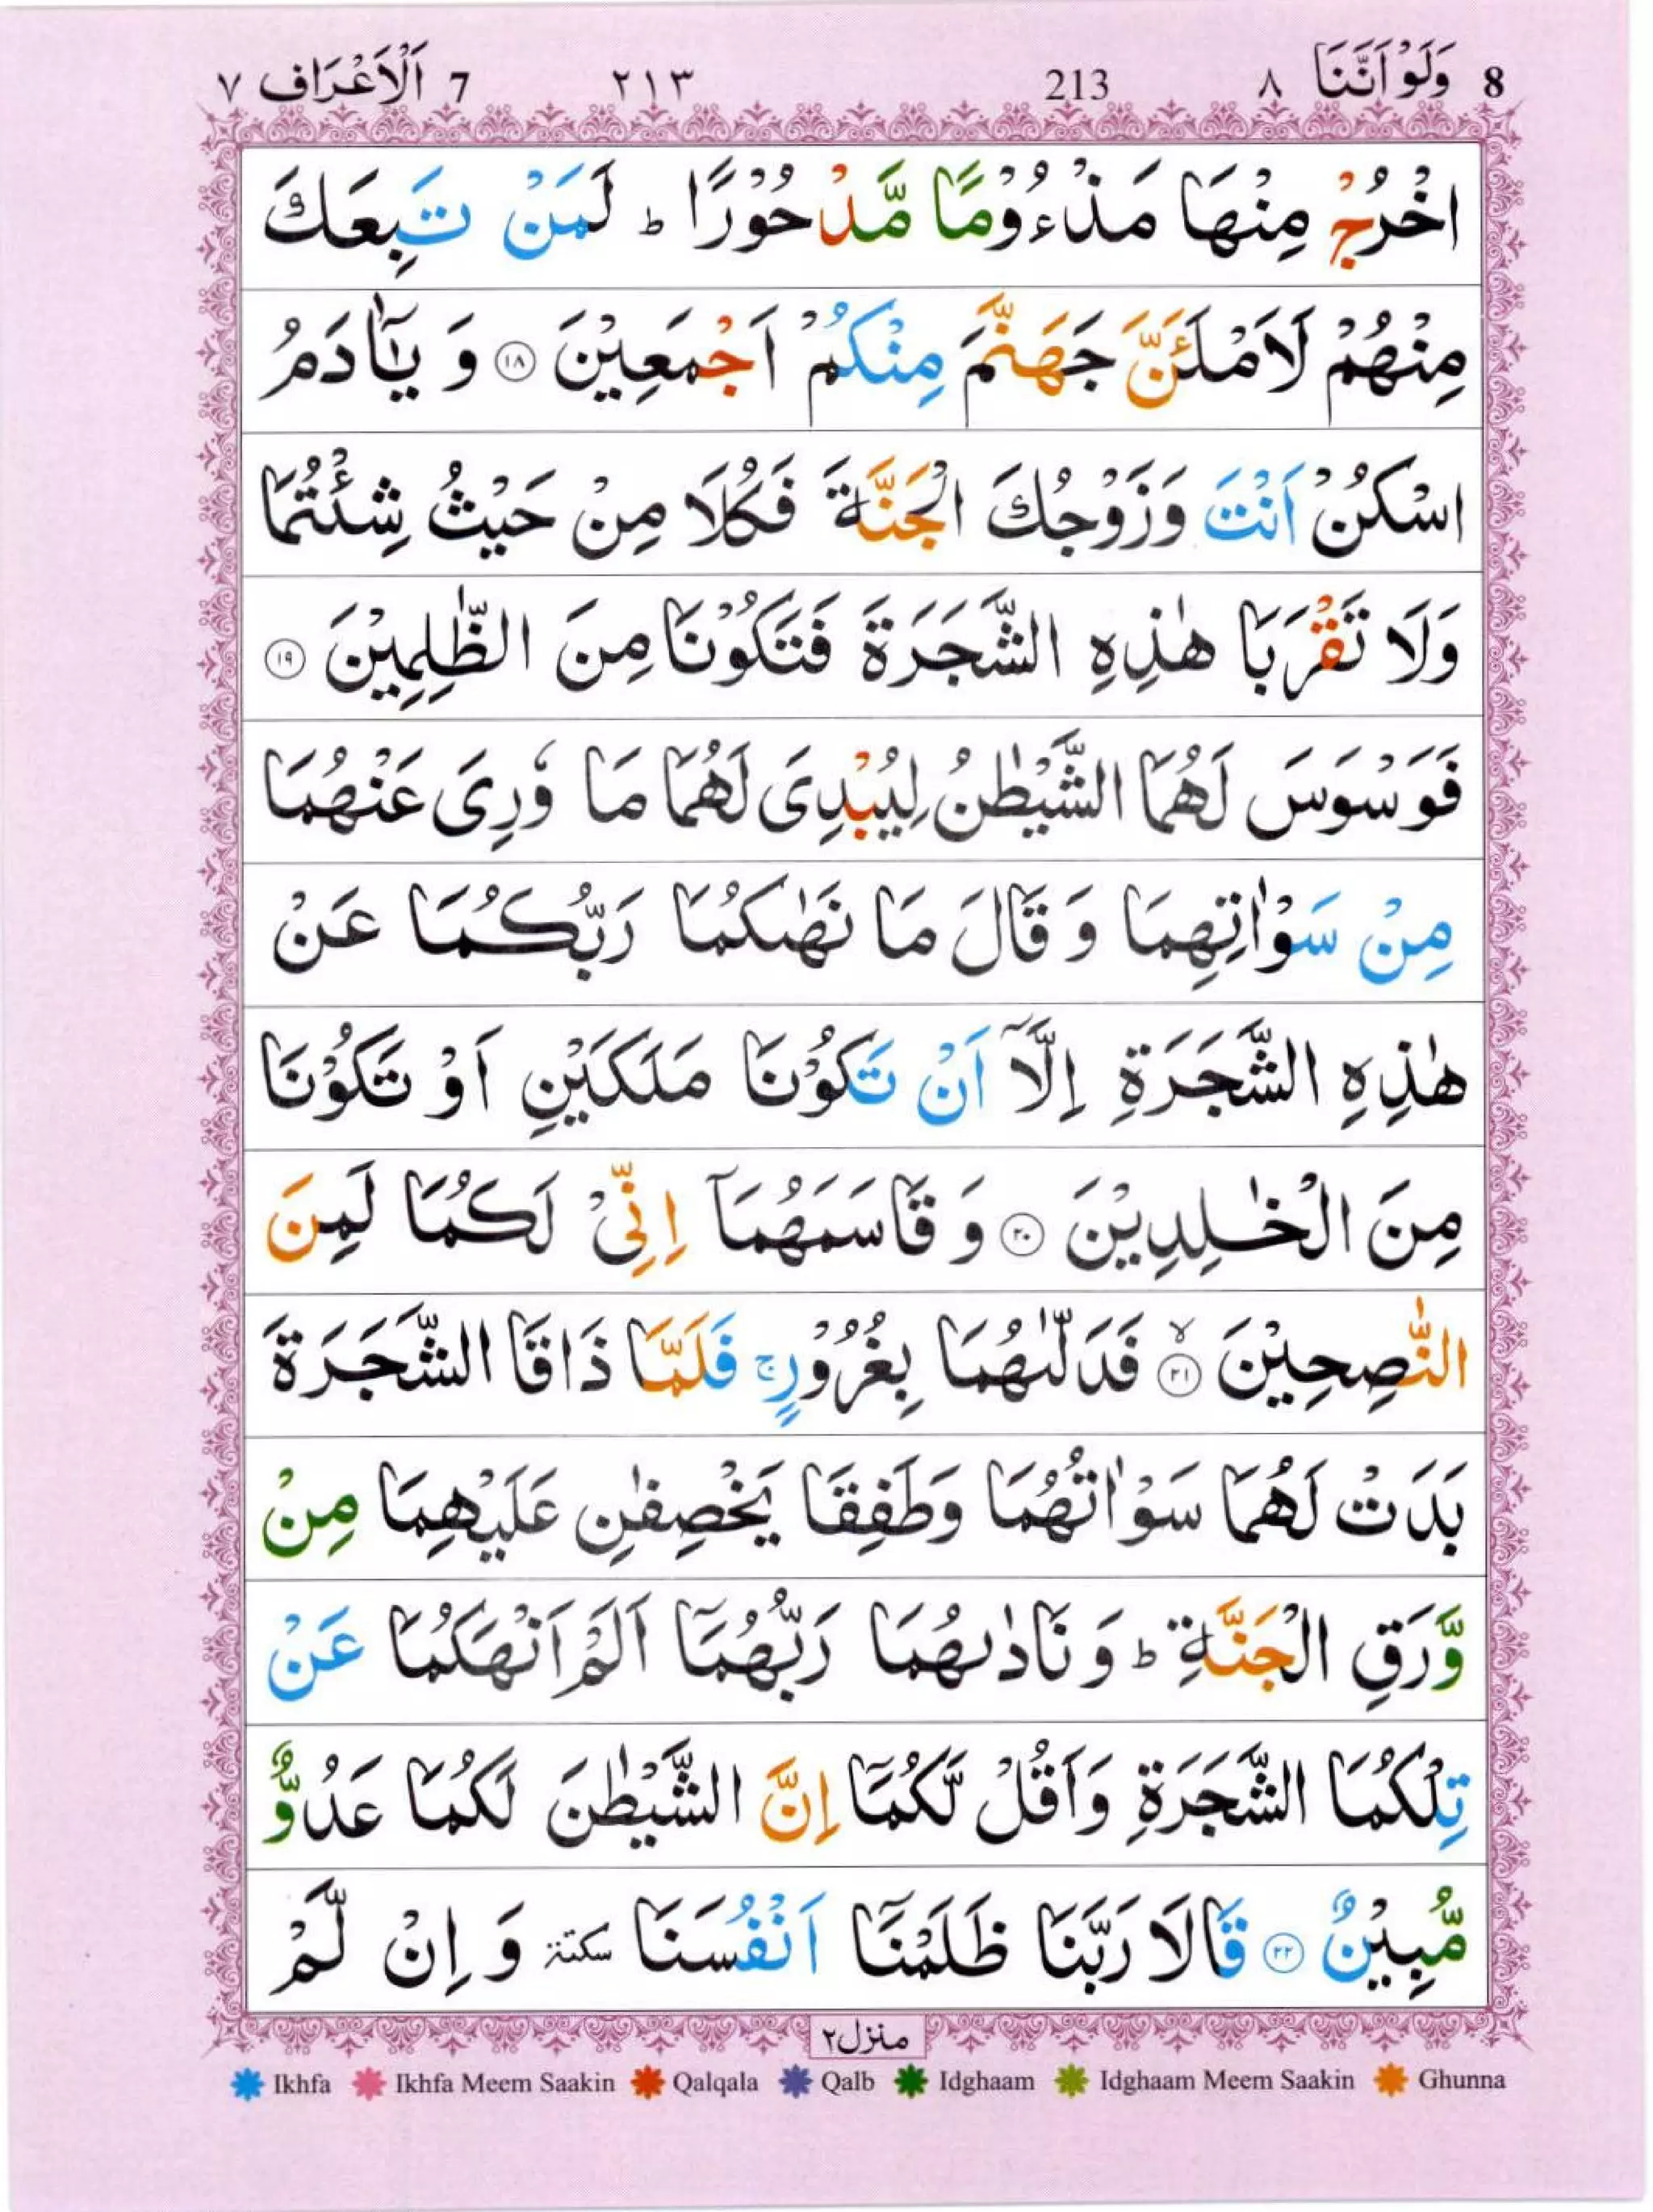 8 وَلَوْ اَنَّنَا ٨ 213 ٢١٣ 7 اَلْاَعْرَاف ٧
اخْرُجْ مِنْهَا مَذْءُوْمًا مَّدْحُوْرًا ؕ لَمَنْ تَبِعَكَ
مِنْهُمْ لَاَمْلَئَنَّ جَهَنَّمَ مِنْكُمْ اَجْمَعِيْنَ ۝١٨ وَ يٰۤاٰدَمُ
اسْكُنْ اَنْتَ وَزَوْجُكَ الْجَنَّةَ فَكُلَا مِنْ حَيْثُ شِئْتُمَا
وَلَا تَقْرَبَا هٰذِهِ الشَّجَرَةَ فَتَكُوْنَا مِنَ الظّٰلِمِيْنَ ۝١٩
فَوَسْوَسَ لَهُمَا الشَّيْطٰنُ لِيُبْدِىَ لَهُمَا مَا وٗرِىَ عَنْهُمَا
مِنْ سَوْاٰتِهِمَا وَ قَالَ مَا نَهٰىكُمَا رَبُّكُمَا عَنْ
هٰذِهِ الشَّجَرَةِ اِلَّاۤ اَنْ تَكُوْنَا مَلَكَيْنِ اَوْ تَكُوْنَا
مِنَ الْخٰلِدِيْنَ ۝٢٠ وَ قَاسَمَهُمَاۤ اِنِّىْ لَكُمَا لَمِنَ
النّٰصِحِيْنَ ۙ۝٢١ فَدَلّٰىهُمَا بِغُرُوْرٍ ۚ فَلَمَّا ذَاقَا الشَّجَرَةَ
بَدَتْ لَهُمَا سَوْاٰتُهُمَا وَطَفِقَا يَخْصِفٰنِ عَلَيْهِمَا مِنْ
وَّرَقِ الْجَنَّةِ ؕ وَ نَادٰىهُمَا رَبُّهُمَاۤ اَلَمْ اَنْهَكُمَا عَنْ
تِلْكُمَا الشَّجَرَةِ وَاَقُلْ لَّكُمَاۤ اِنَّ الشَّيْطٰنَ لَكُمَا عَدُوٌّ
مُّبِيْنٌ ۝٢٢ قَالَا رَبَّنَا ظَلَمْنَاۤ اَنْفُسَنَا سكتة وَ اِنْ لَّمْ
منزل٢
Ikhfa Ikhfa Meem Saakin Qalqala Qalb Idghaam Idghaam Meem Saakin Ghunna